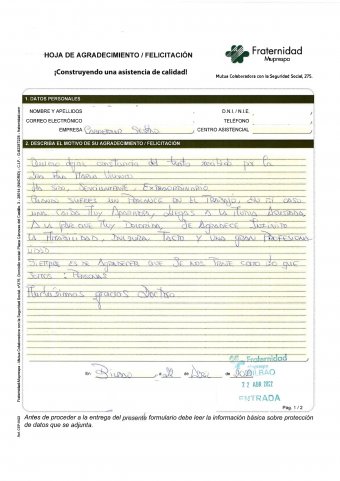 HOJA DE AGRADECIMIENTO / FELICITACIÓN
Fraternidad
Muprespa
¡Construyendo una asistencia de calidad!
Mutua Colaboradora con la Seguridad Social, 275.
1. DATOS PERSONALES
NOMBRE Y APELLIDOS
D.N.I. / N.I.E.
CORREO ELECTRÓNICO
TELÉFONO
EMPRESA
CENTRO ASISTENCIAL
2. DESCRIBA EL MOTIVO DE SU AGRADECIMIENTO / FELICITACIÓN
Quiero dejar constancia del trato recibido por la
Dra Ana María
Ha sido, sencillamente, Extraordinario
Cuando sufres un percance en el trabajo, en mi caso
una caída muy aparatosa, llegas a la Mutua asustada
a la par que muy dolorida, se agradece infinito
la amabilidad, dulzura, tacto y una gran profesiona-
lidad
Siempre es de agradecer que se nos trate como lo que
somos: Personas
Muchísimas gracias Doctora
En Bilbao a 22 de de
Fraternidad
Muprespa
BILBAO
22 ABR 2022
ENTRADA
Pág. 1 / 2
Antes de proceder a la entrega del presente formulario debe leer la información básica sobre protección
de datos que se adjunta.